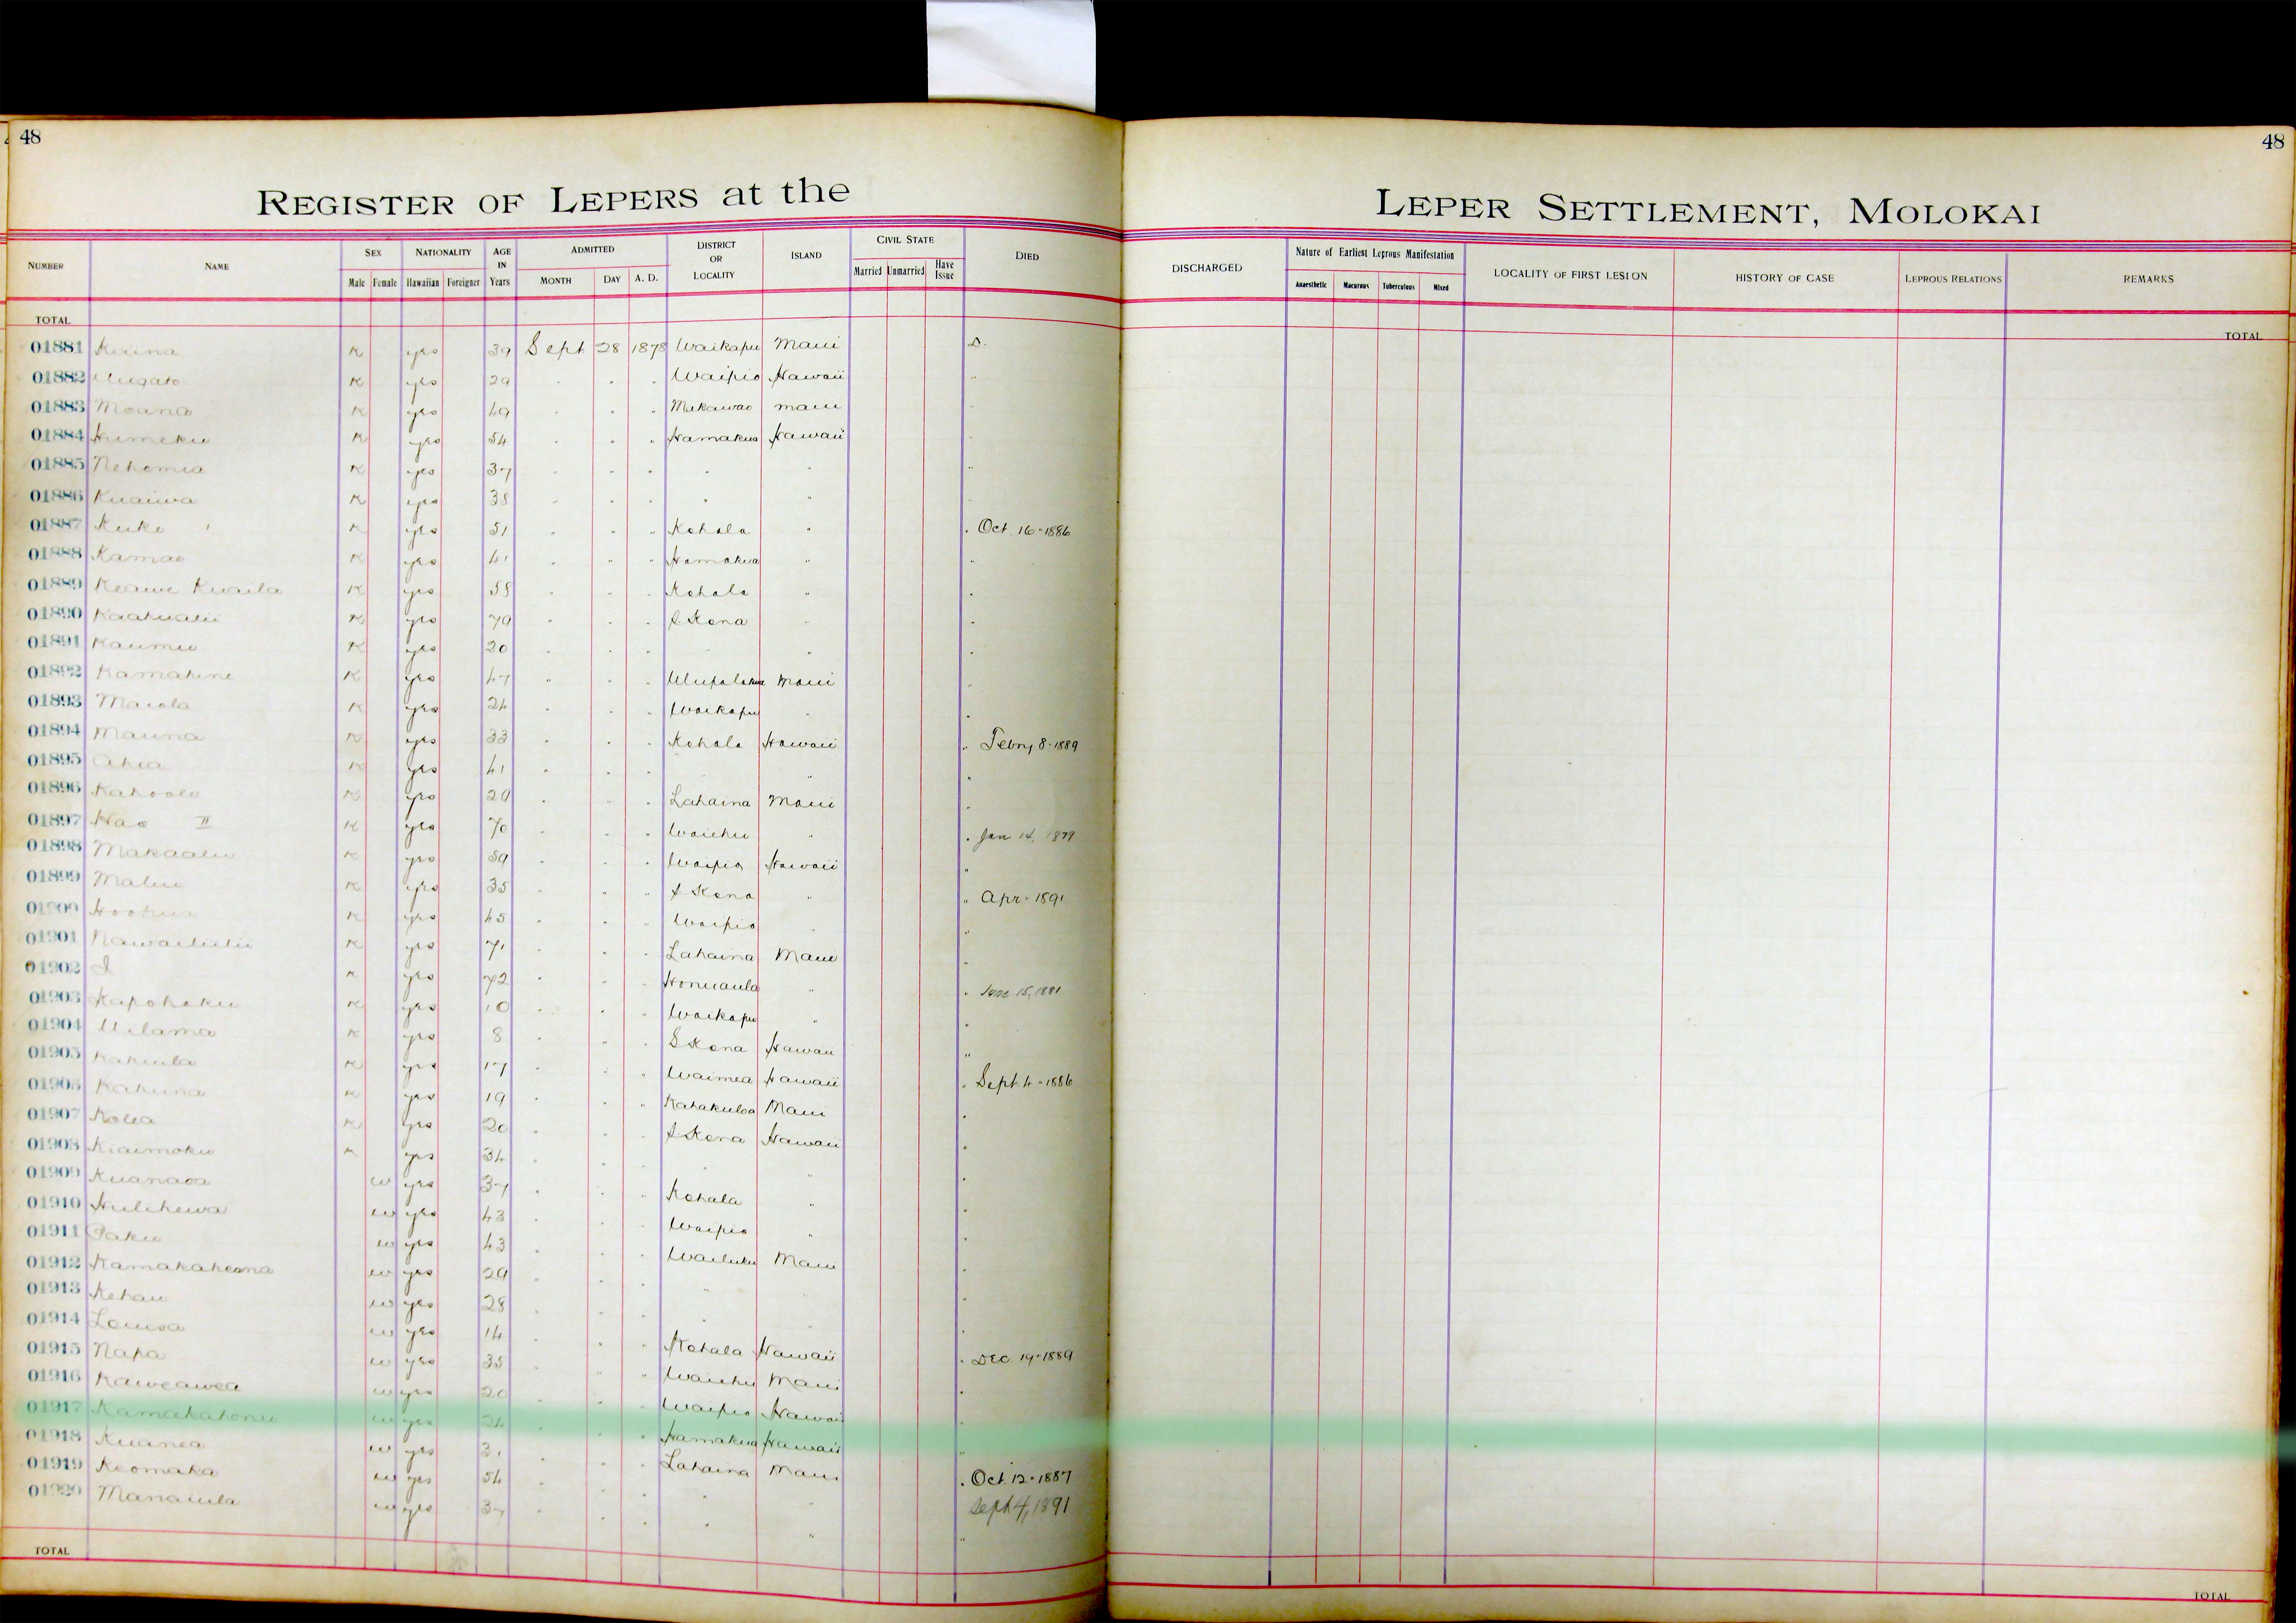 48
48
REGISTER OF LEPERS at the
LEPER SETTLEMENT, MOLOKAI
NUMBER NAME SEX NATIONALITY AGE IN Years ADMITTED DISTRICT OR LOCALITY ISLAND CIVIL STATE DIED DISCHARGED Nature of Earliest Leprous Manifestation LOCALITY OF FIRST LESION HISTORY OF CASE LEPROUS RELATIONS REMARKS
Male Female Hawaiian Foreigner MONTH DAY A. D. Married Unmarried Have Issue Anaesthetic Macurous Tuberculous Mixed
TOTAL
TOTAL
01881 K yes 39 Sept 28 1878 Waikapu Maui D.
01882 K yes 29 " " " Waipio Hawaii "
01883 Moana K yes 49 " " " Makawao Maui "
01884 Humeku K yes 54 " " " Hamakua Hawaii "
01885 Nehemia K yes 37 " " " " " "
01886 Kuaiwa K yes 38 " " " " " "
01887 Kuke K yes 51 " " " Kohala " " Oct. 16-1886
01888 Kamae K yes 41 " " " Hamakua " "
01889 Keawe Kuaila K yes 58 " " " Kohala " "
01890 Kaahualii K yes 79 " " " S Kona " "
01891 Kaumu K yes 20 " " " " " "
01892 Kamahine K yes 47 " " " Ulupalakua Maui "
01893 Maiola K yes 24 " " " Waikapu " "
01894 Mauna K yes 33 " " " Kohala Hawaii " Febry 8-1889
01895 Ahia K yes 41 " " " " " "
01896 Kahoolo K yes 29 " " " Lahaina Maui "
01897 Hao II K yes 70 " " " Waiehu " " Jan 14, 1879
01898 Makaalu K yes 59 " " " Waipio Hawaii "
01899 Malu K yes 35 " " " S Kona " " Apr. 1891
01900 Hoohua K yes 45 " " " Waipio " "
01901 Nawailiilii K yes 71 " " " Lahaina Maui "
01902 I K yes 72 " " " Honuaula " " June 15, 1881
01903 Kapohaku K yes 10 " " " Waikapu " "
01904 Uilama K yes 8 " " " S Kona Hawaii "
01905 Kahiula K yes 17 " " " Waimea Hawaii " Sept. 4-1886
01906 Kahuna K yes 19 " " " Kahakuloa Maui "
01907 Kolea K yes 20 " " " S Kona Hawaii "
01908 Kiaimoku K yes 34 " " " " " "
01909 Kuanaoa w yes 37 " " " Kohala " "
01910 Hulihewa w yes 43 " " " Waipio " "
01911 Paku w yes 43 " " " Wailuku Maui "
01912 Kamakaheana w yes 29 " " " " " "
01913 Kehau w yes 28 " " " " " "
01914 Louisa w yes 14 " " " Kohala Hawaii " Dec. 19-1889
01915 Napa w yes 35 " " " Waiehu Maui "
01916 Kaweawea w yes 20 " " " Waipio Hawaii "
01917 Kamakahonu w yes 24 " " " Hamakua Hawaii "
01918 Kuanea w yes 31 " " " Lahaina Maui " Oct. 12-1887
01919 Keomaka w yes 54 " " " " " Sept 4, 1891
01920 Manaiula w yes 37 " " " " " "
TOTAL
TOTAL